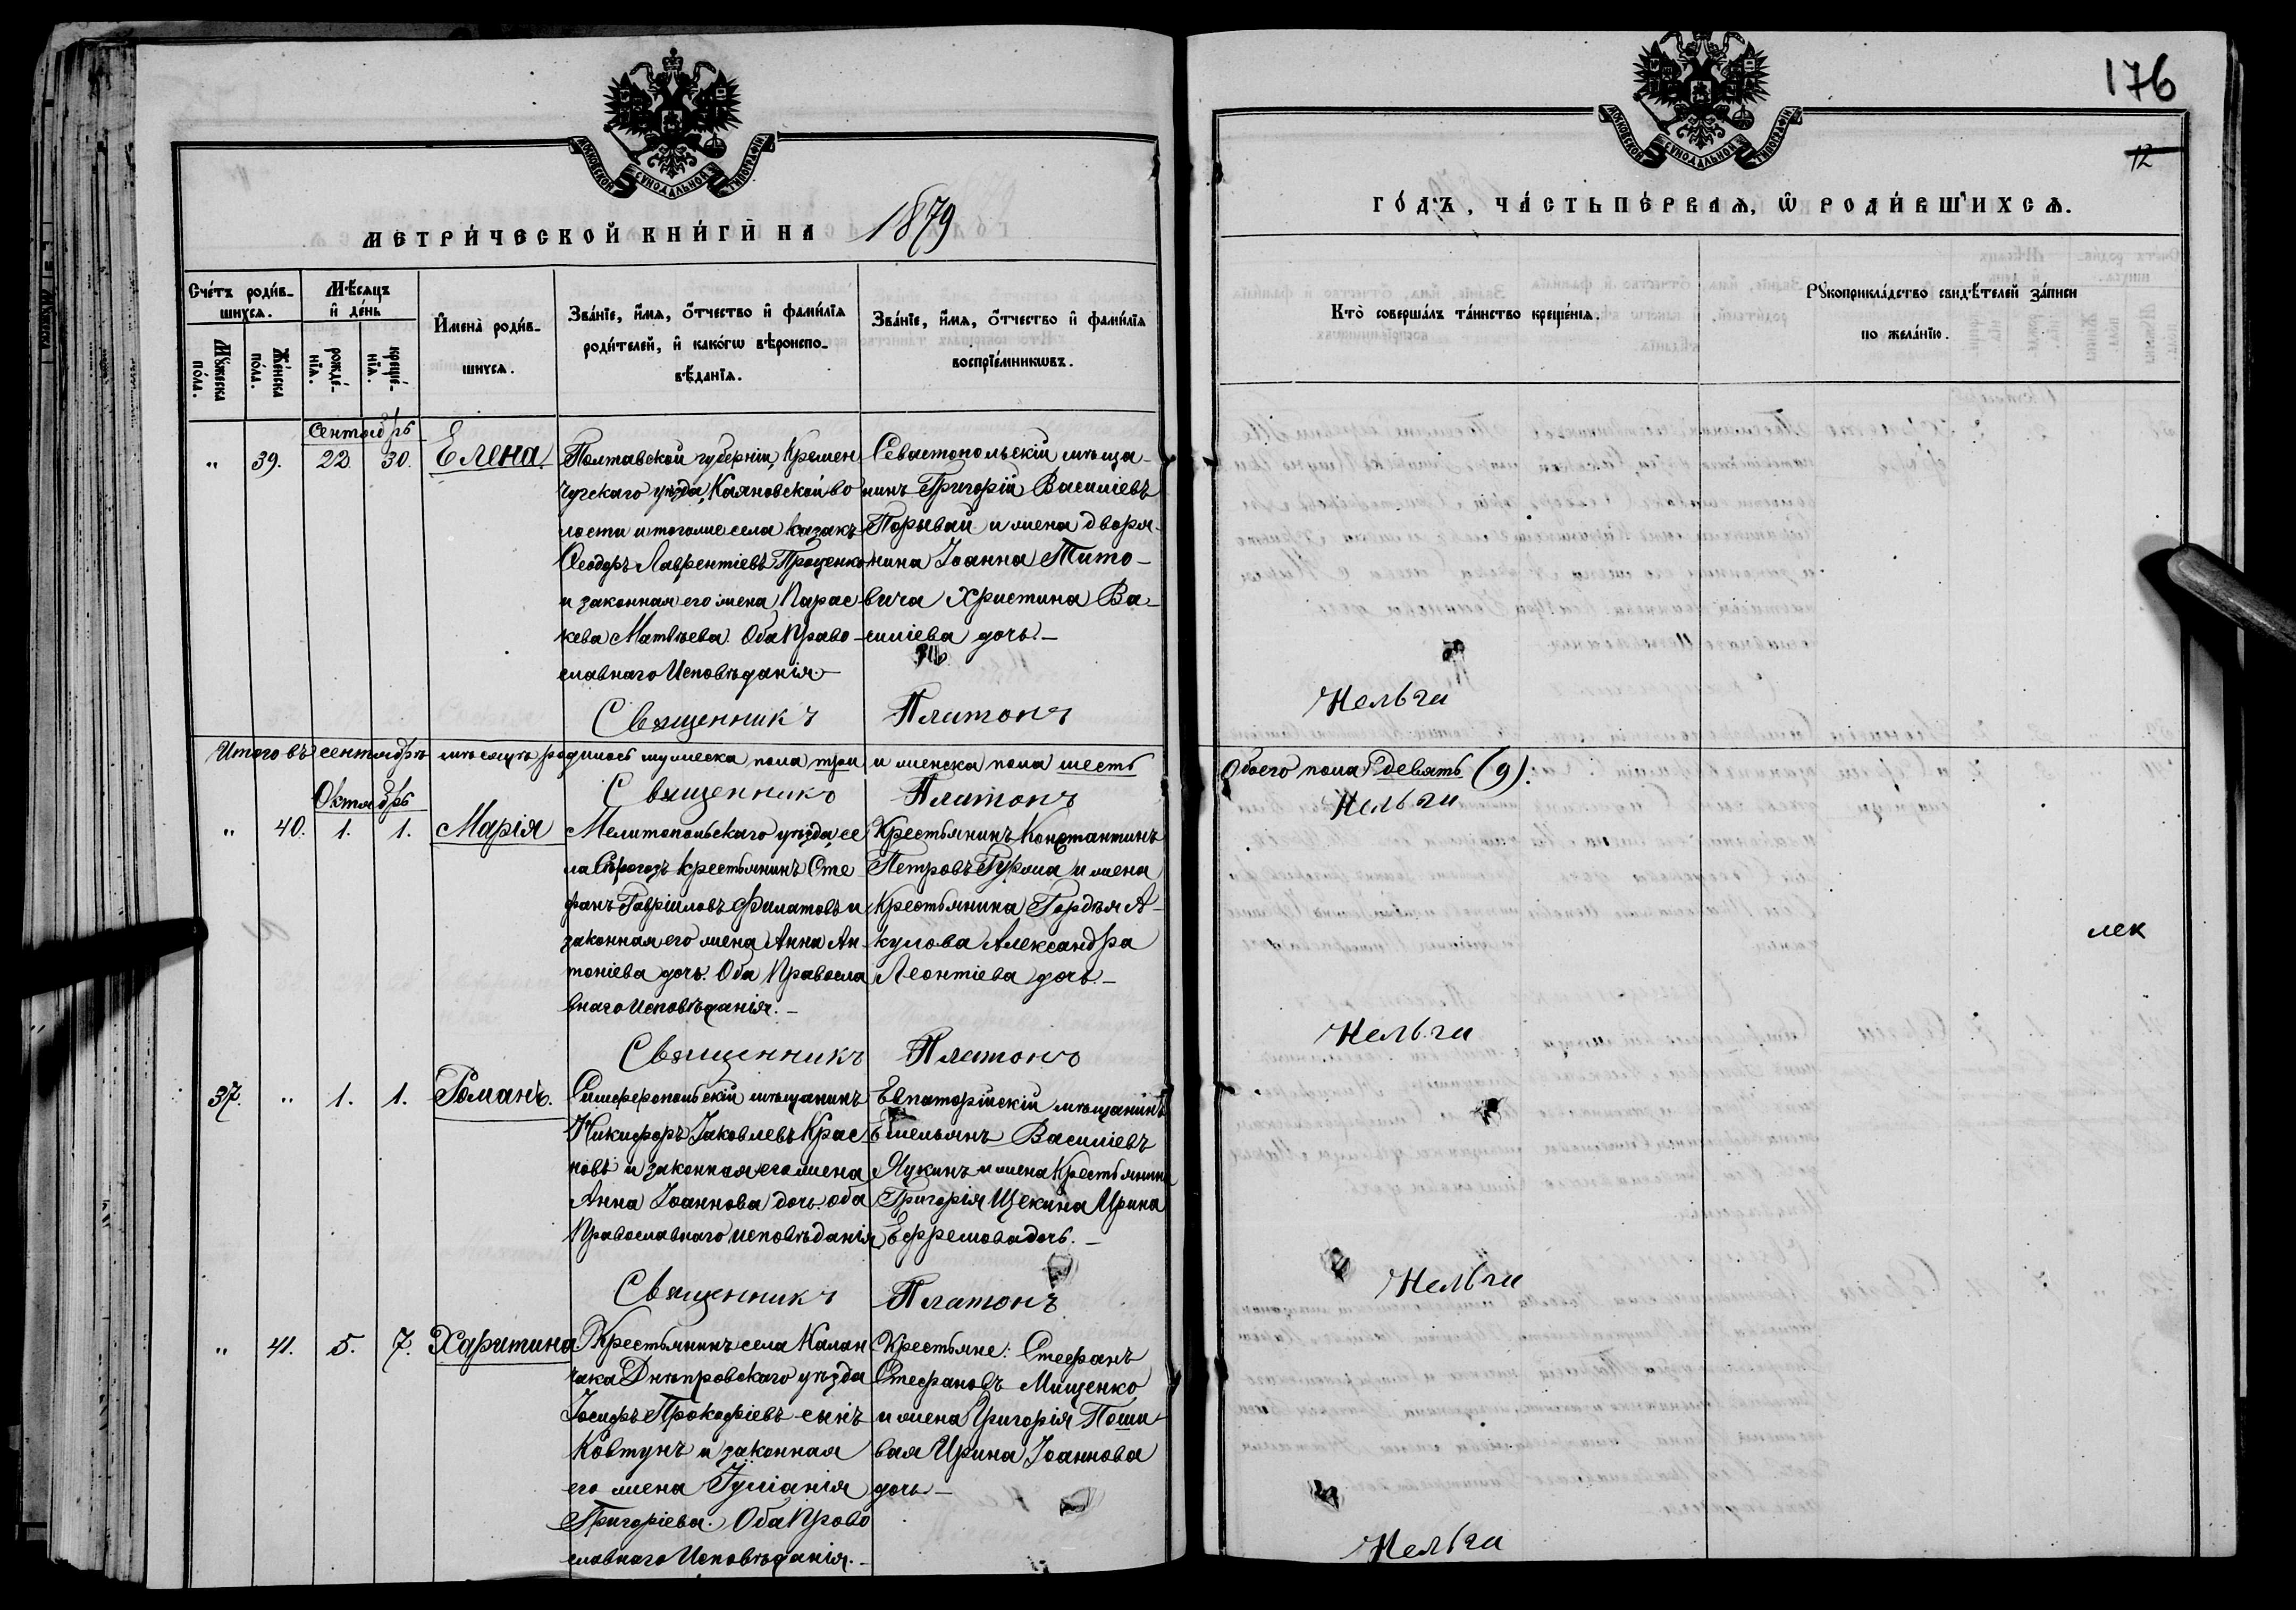 176
12
МОСКОВСКОЙ СѴНОДАЛЬНОЙ ТИПОГРАФІИ
МОСКОВСКОЙ СѴНОДАЛЬНОЙ ТИПОГРАФІИ
МЕТРИ́ЧЕСКОЙ КНИ́ГИ НА 1879
ГО́ДЪ, ЧА́СТЬ ПЕ́РВАѦ, Ѿ РОДИ́ВШИХСѦ.
Сче́тъ роди́вшихсѧ.
Мꙋ́жеска по́ла.
Же́нска по́ла.
Мѣ́сяцъ и де́нь
рожде́нїѧ.
креще́нїѧ.
Имена̀ роди́вшихсѧ.
Зва́нїе, и́мѧ, о́тчество и фами́лїѧ
роди́телей, и како́гѡ вѣроиспо-
вѣ́данїѧ.
Зва́нїе, и́мѧ, о́тчество и фами́лїѧ
воспрїе́мникѡвъ.
Кто̀ соверша́лъ та́инство креще́нїѧ.
Рꙋкоприкла́дство свидѣ́телей за́писи
по жела́нїю.
Сентябрь
" 39. 22. 30. Елена.
Полтавской губерніи, Кремен
чугскаго уѣзда, Каяновской во
лости и тогоже села казакъ
Ѳеодоръ Лаврентіевъ Проценко
и законная его жена Парас
кева Матвѣева. Оба Право-
славнаго Исповѣданія.-
Севастопольскій мѣща-
нинъ Григорій Василіевъ
Порывай и жена дворя-
нина Іоанна Тито-
вича Христина Ва-
силіева дочь.-
Священникъ Платонъ Нельги
Итого въ сентябрѣ мѣсяцѣ родилось мужеска пола три и женска пола шесть Обоего пола девять (9).
Священникъ Платонъ Нельги
Октябрь
" 40. 1. 1. Марія
Мелитопольскаго уѣзда, се
ла Сѣрогозъ крестьянинъ Сте
фанъ Гавріиловъ Филатовъ и
законная его жена Анна Ан-
тоніева дочь. Оба Правосла
внаго Исповѣданія.-
Крестьянинъ Константинъ
Петровъ и жена
Крестьянина Гордѣя А-
кулова Александра
Леонтіева дочь.-
лек
Священникъ Платонъ Нельги
37. " 1. 1. Романъ.
Симферопольскій мѣщанинъ
Никифоръ Іаковлевъ Крас
новъ и законная его жена
Анна Іоаннова дочь. оба
Православнаго исповѣданія
Евпаторійскій мѣщанинъ
Емельянъ Василіевъ
Чукинъ и жена Крестьянина
Григорія Щекина Ирина
Ефремова дочь.-
Священникъ Платонъ Нельги
" 41. 5. 7. Харитина
Крестьянинъ села Калан
чака Днѣпровскаго уѣзда
Іосифъ Прокофіевъ сынъ
Ковтунъ и законная
его жена Іуліанія
Григоріева. Оба Право
славнаго Исповѣданія.-
Крестьяне: Стефанъ
Стефановъ Мищенко
и жена Григорія Поши-
вая Ирина Іоаннова
дочь.-
Нельги